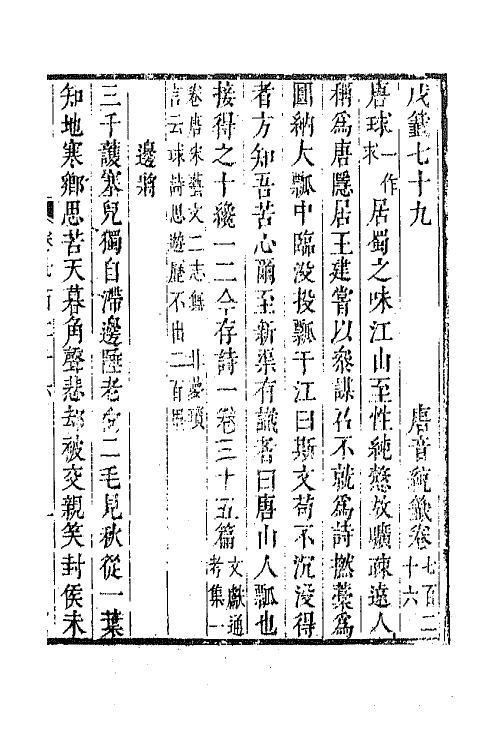 戊籤七十九　唐音統籤卷七百二十六
唐球一作求居蜀之味江山至性純慤放曠疎遠人
稱爲唐隱居王建嘗以參謀召不就爲詩撚藁爲
圓納大瓢中臨沒投瓢于江曰斯文苟不沉沒得
者方知吾苦心爾至新渠有識者曰唐山人瓢也
接得之十纔一二今存詩一卷三十五篇文獻通考集一
卷唐宋藝文二志無　北夢瑣言云球詩思遊歷不出二百里
邊將
三千護塞兒獨自滯邊陲老會二毛見秋從一葉
知地寒鄉思苦天暮角聲悲却被交親笑封侯未